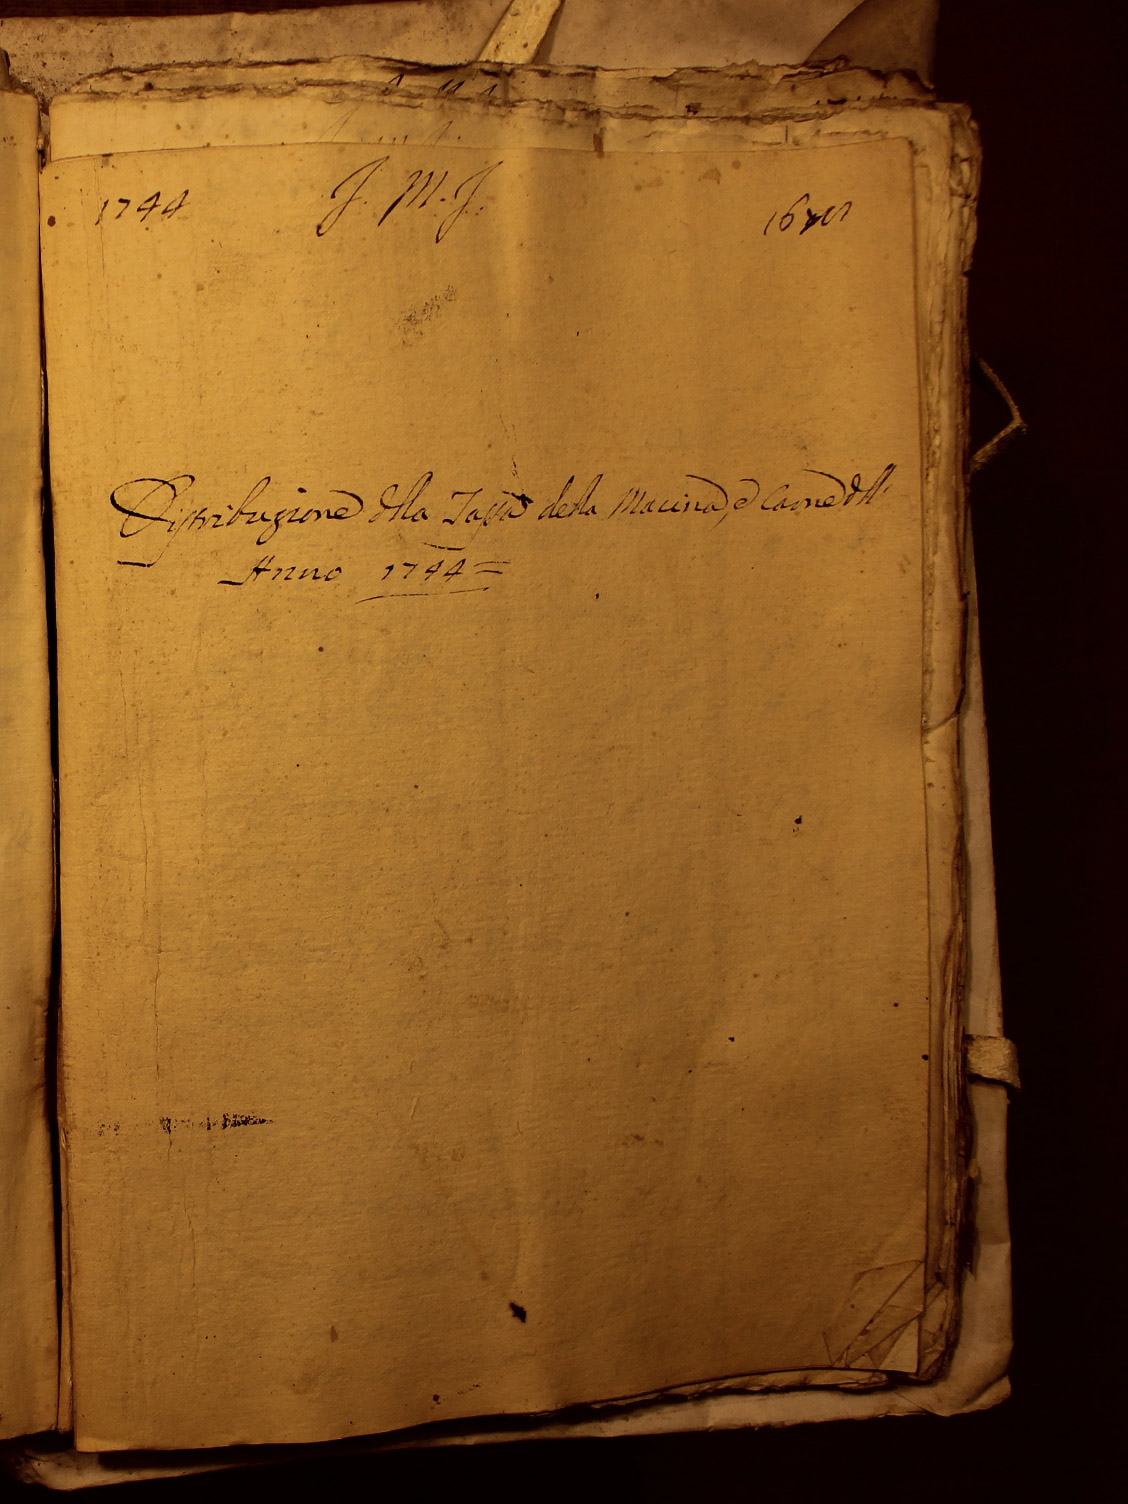 1744 J. M. J.
Distribuzione della Tassa della Macina, e Carne dell'
Anno 1744=